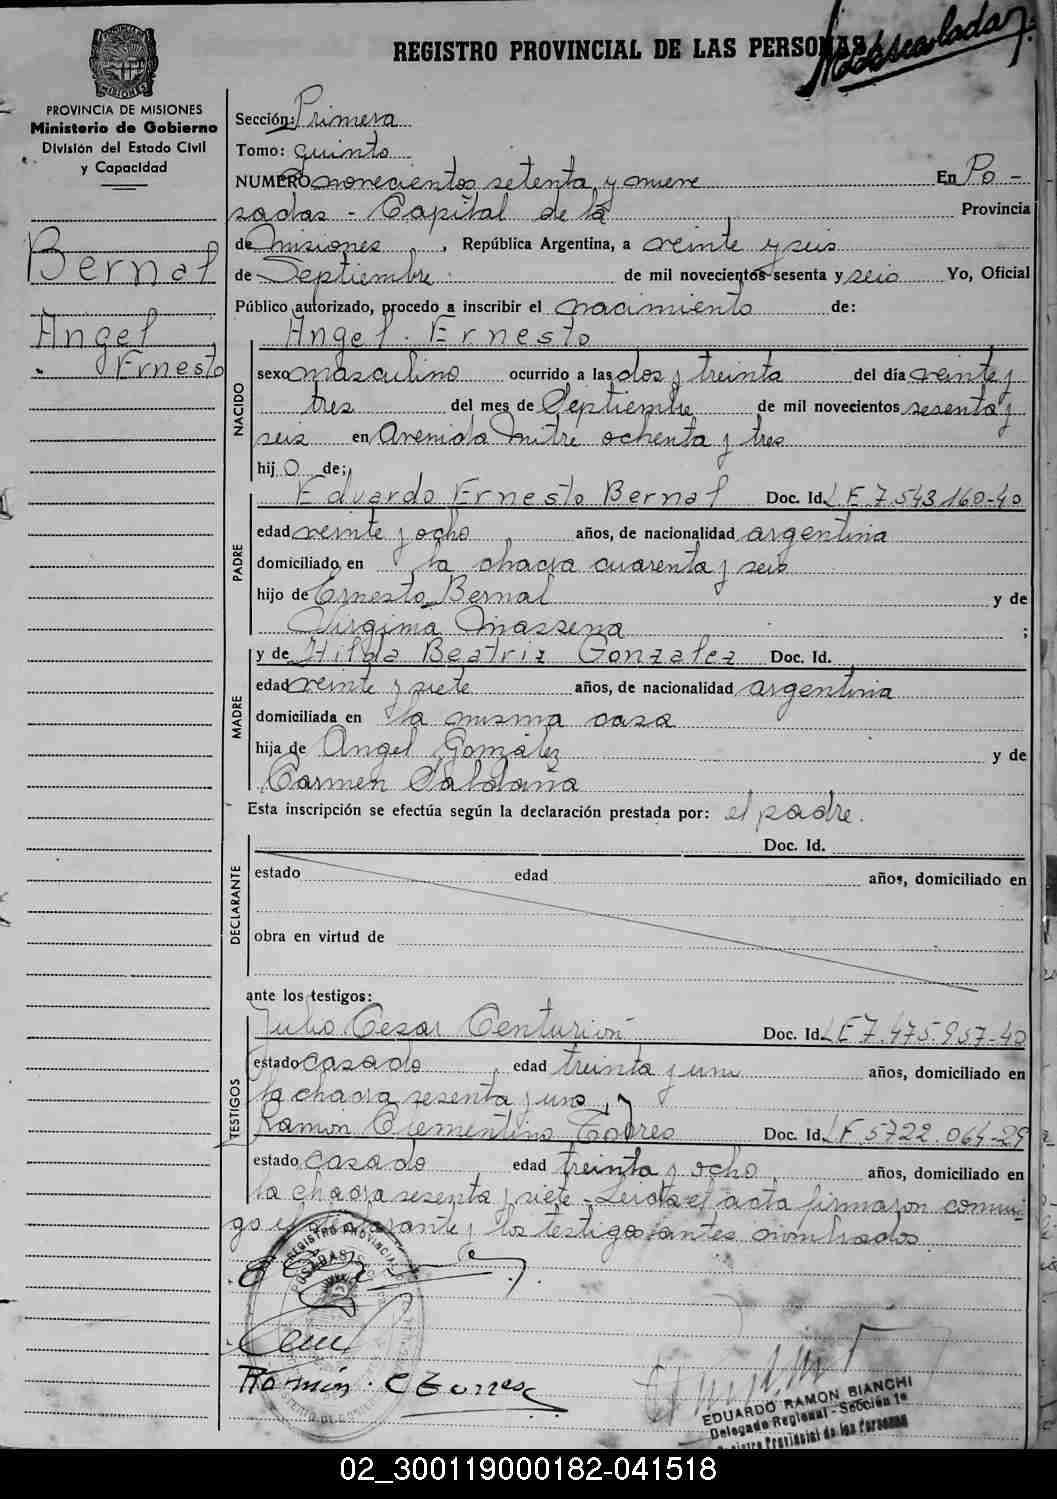 REGISTRO PROVINCIAL DE LAS PERSONAS
PROVINCIA DE MISIONES
Ministerio de Gobierno
División del Estado Civil
y Capacidad
Bernal
Angel
Ernesto
Sección: Primera
Tomo: quinto
NUMERO novecientos setenta y nueve En Po-
sadas - Capital de la Provincia
de Misiones, República Argentina, a veinte y seis
de Septiembre de mil novecientos sesenta y seis Yo, Oficial
Público autorizado, procedo a inscribir el nacimiento de:
Angel Ernesto
NACIDO
sexo masculino ocurrido a las dos y treinta del día veinte y
tres del mes de Septiembre de mil novecientos sesenta y
seis en Avenida Mitre ochenta y tres
hijo de;
PADRE
Eduardo Ernesto Bernal Doc. Id. L E 7.543.160-40
edad veinte y ocho años, de nacionalidad argentina
domiciliado en la chacra cuarenta y seis
hijo de Ernesto Bernal y de
Virginia Massena ;
MADRE
y de Hilda Beatriz Gonzalez Doc. Id.
edad veinte y siete años, de nacionalidad argentina
domiciliada en la misma casa
hija de Angel González y de
Carmen Saldaña
Esta inscripción se efectúa según la declaración prestada por: el padre.
Doc. Id.
DECLARANTE
estado edad años, domiciliado en
obra en virtud de
ante los testigos:
TESTIGOS
Julio Cesar Centurión Doc. Id. L E 7.475.957-40
estado casado, edad treinta y uno años, domiciliado en
la chacra sesenta y uno, y
Ramon Clementino Torres Doc. Id. L E 5722.064-29
estado casado edad treinta y ocho años, domiciliado en
la chacra sesenta y siete - Leida el acta firmaron conmi-
go el declarante y los testigos antes nombrados.
REGISTRO PROVINCIAL
POSADAS
Ramón C Torres
EDUARDO RAMON BIANCHI
Delegado Regional - Sección 1ª
Registro Provincial de las Personas
02_300119000182-041518